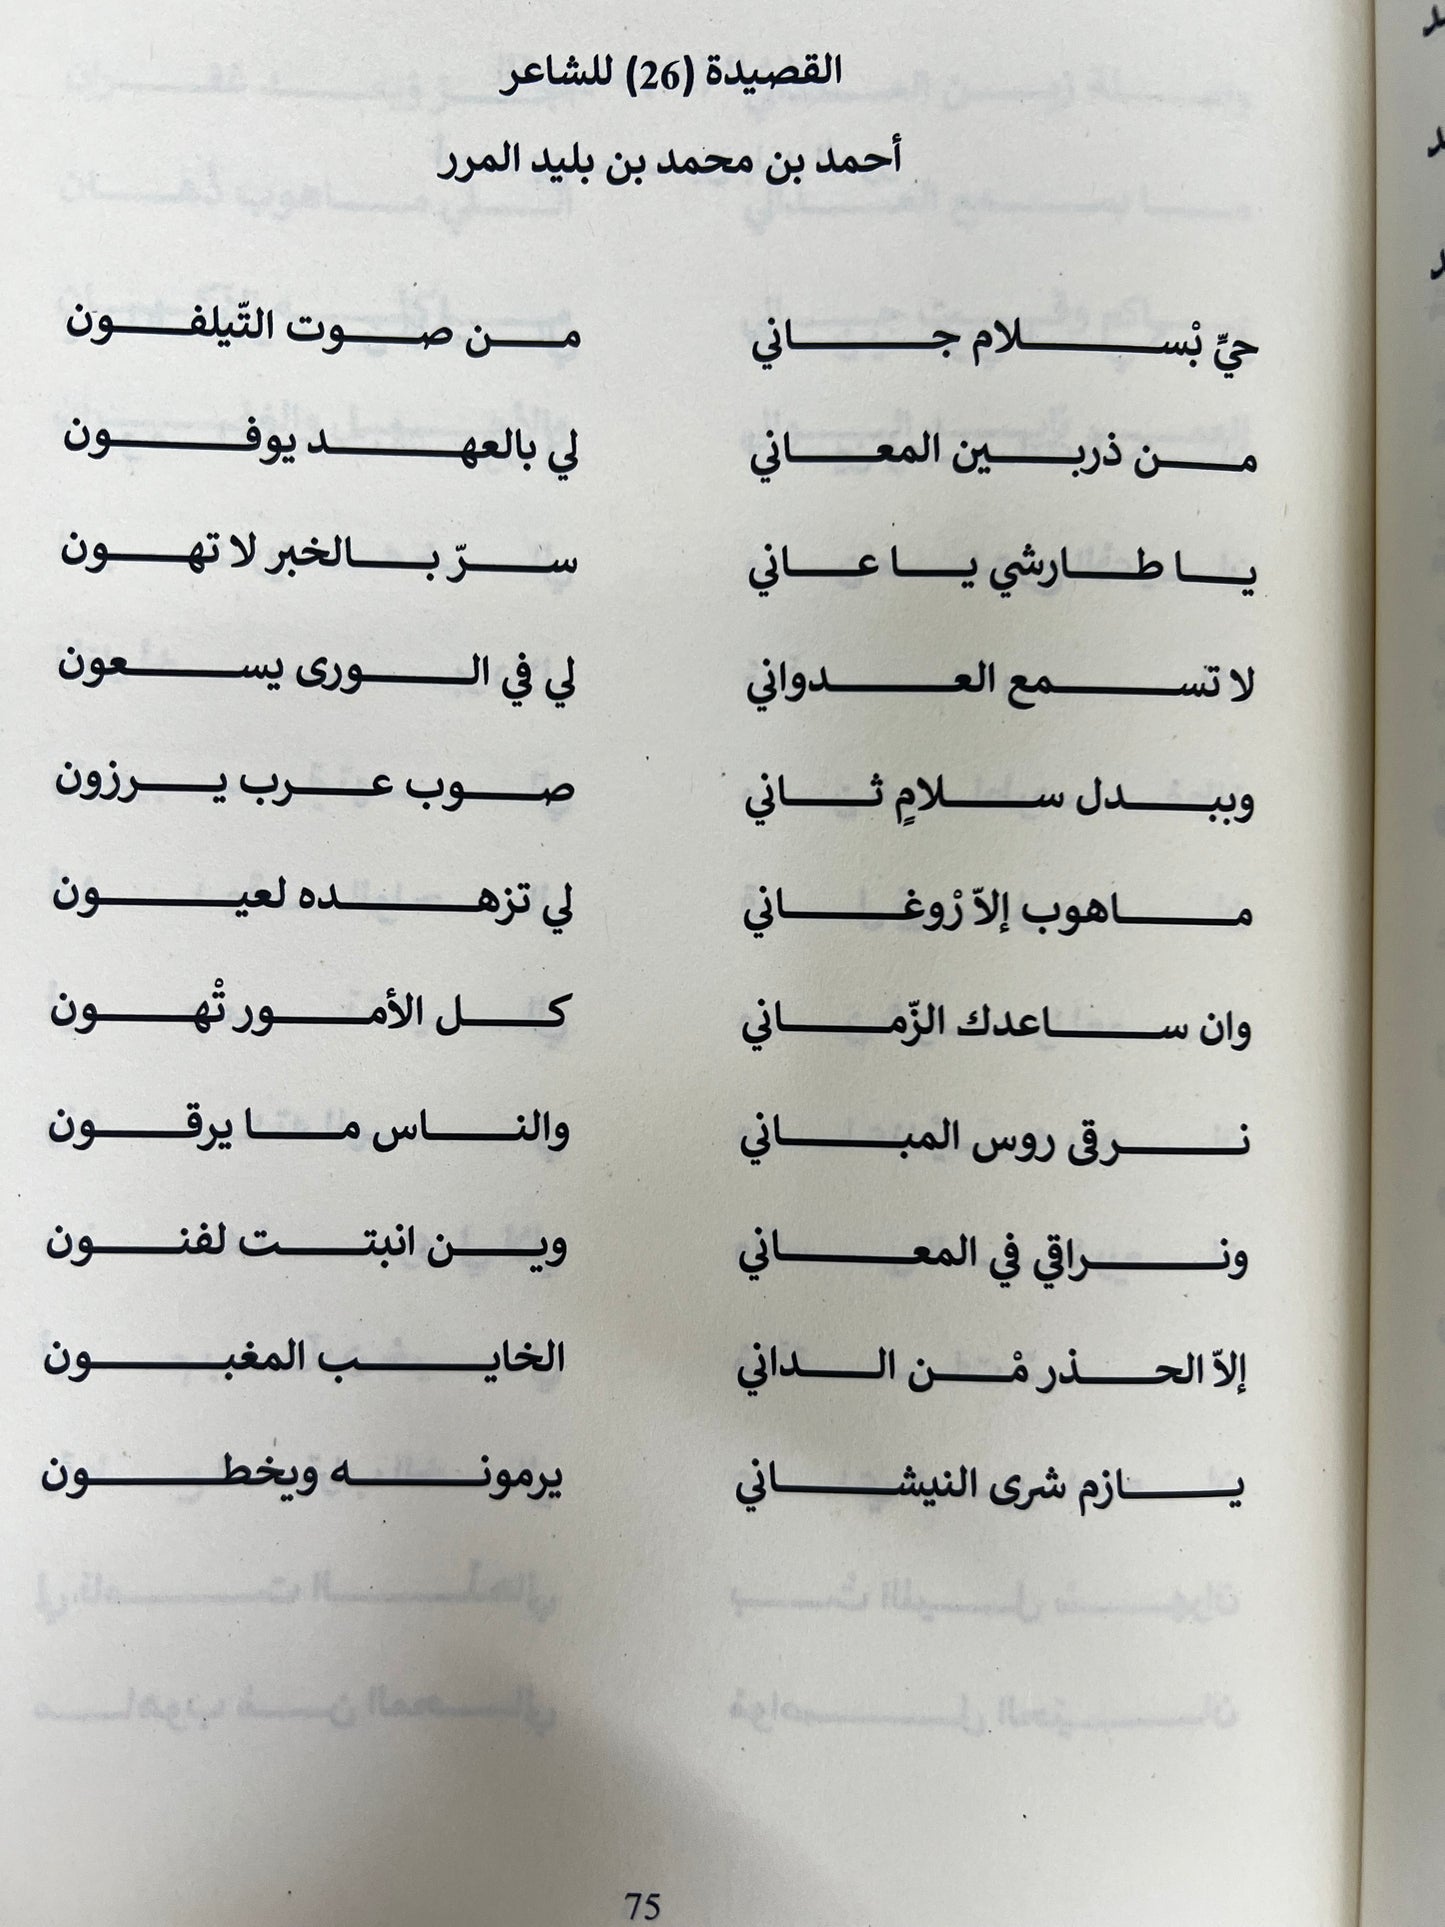 القصيدة (26) للشاعر
أحمد بن محمد بن بليد المرر
حيِّ بْسلام جاني من صوت التّيلفون
من ذربين المعاني لي بالعهد يوفون
يا طارشي يا عاني سرّ بالخبر لا تهون
لا تسمع العدواني لي في الورى يسعون
وببدل سلامٍ ثاني صوب عرب يرزون
ماهوب إلاّ رْوغاني لي تزهده لعيون
وان ساعدك الزّماني كل الأمور تْهون
نرقى روس المباني والناس ما يرقون
ونراقي في المعاني وين انبتت لفنون
إلاّ الحذر مْن الداني الخايب المغبون
يازم شرى النيشاني يرمونه ويخطون
75